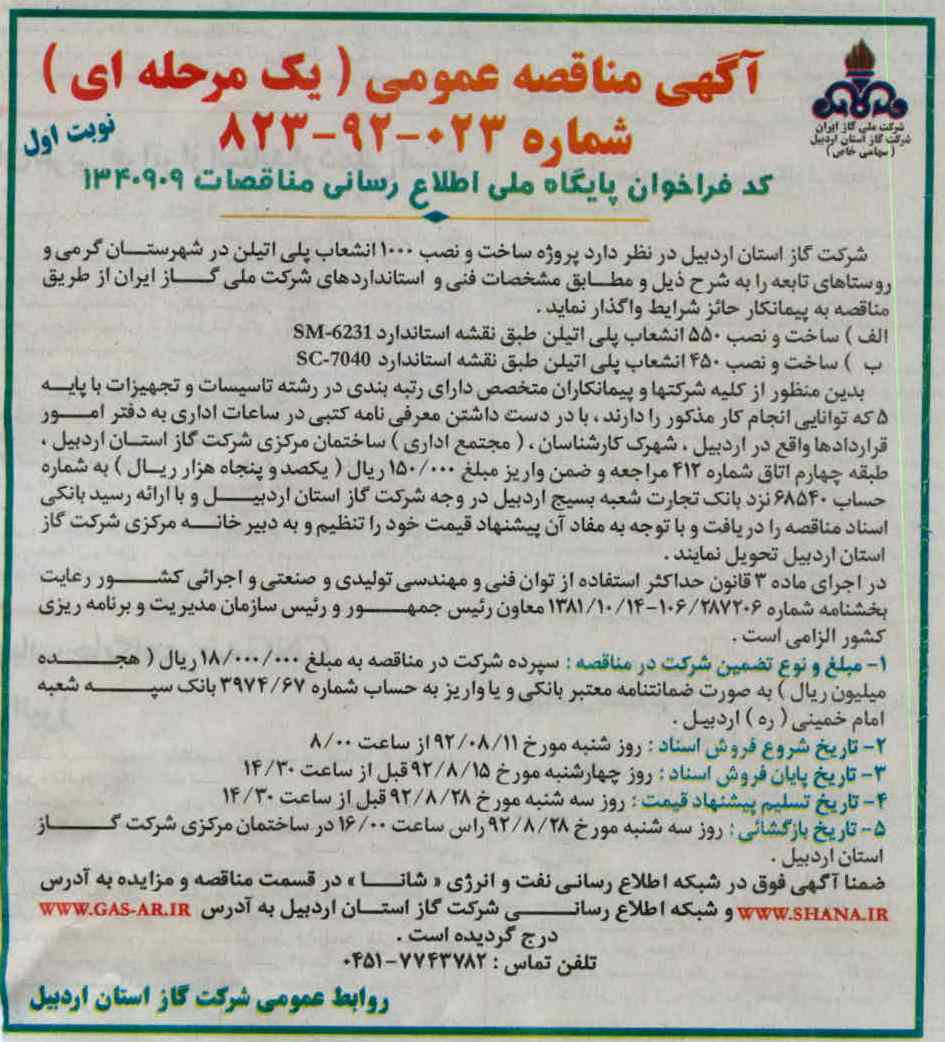 شرکت ملی گاز ایران
شرکت گاز استان اردبیل
( سهامی خاص )
آگهی مناقصه عمومی ( یک مرحله ای )
شماره ۰۲۳-۹۲-۸۲۳
نوبت اول
کد فراخوان پایگاه ملی اطلاع رسانی مناقصات ۱۳۴۰۹۰۹
شرکت گاز استان اردبیل در نظر دارد پروژه ساخت و نصب ۱۰۰۰ انشعاب پلی اتیلن در شهرستان گرمی و
روستاهای تابعه را به شرح ذیل و مطابق مشخصات فنی و استانداردهای شرکت ملی گاز ایران از طریق
مناقصه به پیمانکار حائز شرایط واگذار نماید .
الف ) ساخت و نصب ۵۵۰ انشعاب پلی اتیلن طبق نقشه استاندارد SM-6231
ب ) ساخت و نصب ۴۵۰ انشعاب پلی اتیلن طبق نقشه استاندارد SC-7040
بدین منظور از کلیه شرکتها و پیمانکاران متخصص دارای رتبه بندی در رشته تاسیسات و تجهیزات با پایه
۵ که توانایی انجام کار مذکور را دارند ، با در دست داشتن معرفی نامه کتبی در ساعات اداری به دفتر امور
قراردادها واقع در اردبیل ، شهرک کارشناسان ، ( مجتمع اداری ) ساختمان مرکزی شرکت گاز استان اردبیل ،
طبقه چهارم اتاق شماره ۴۱۲ مراجعه و ضمن واریز مبلغ ۱۵۰/۰۰۰ ریال ( یکصد و پنجاه هزار ریال ) به شماره
حساب ۶۸۵۴۰ نزد بانک تجارت شعبه بسیج اردبیل در وجه شرکت گاز استان اردبیل و با ارائه رسید بانکی
اسناد مناقصه را دریافت و با توجه به مفاد آن پیشنهاد قیمت خود را تنظیم و به دبیر خانه مرکزی شرکت گاز
استان اردبیل تحویل نمایند .
در اجرای ماده ۳ قانون حداکثر استفاده از توان فنی و مهندسی تولیدی و صنعتی و اجرائی کشور رعایت
بخشنامه شماره ۱۰۶/۲۸۷۲۰۶-۱۳۸۱/۱۰/۱۴ معاون رئیس جمهور و رئیس سازمان مدیریت و برنامه ریزی
کشور الزامی است .
۱- مبلغ و نوع تضمین شرکت در مناقصه : سپرده شرکت در مناقصه به مبلغ ۱۸/۰۰۰/۰۰۰ ریال ( هجده
میلیون ریال ) به صورت ضمانتنامه معتبر بانکی و یا واریز به حساب شماره ۳۹۷۴/۶۷ بانک سپه شعبه
امام خمینی ( ره ) اردبیل .
۲- تاریخ شروع فروش اسناد : روز شنبه مورخ ۹۲/۰۸/۱۱ از ساعت ۸/۰۰
۳- تاریخ پایان فروش اسناد : روز چهارشنبه مورخ ۹۲/۸/۱۵ قبل از ساعت ۱۴/۳۰
۴- تاریخ تسلیم پیشنهاد قیمت : روز سه شنبه مورخ ۹۲/۸/۲۸ قبل از ساعت ۱۴/۳۰
۵- تاریخ بازگشائی : روز سه شنبه مورخ ۹۲/۸/۲۸ راس ساعت ۱۶/۰۰ در ساختمان مرکزی شرکت گاز
استان اردبیل .
ضمنا آگهی فوق در شبکه اطلاع رسانی نفت و انرژی « شانا » در قسمت مناقصه و مزایده به آدرس
WWW.SHANA.IR و شبکه اطلاع رسانی شرکت گاز استان اردبیل به آدرس WWW.GAS-AR.IR
درج گردیده است .
تلفن تماس : ۷۷۴۳۷۸۲-۰۴۵۱
روابط عمومی شرکت گاز استان اردبیل